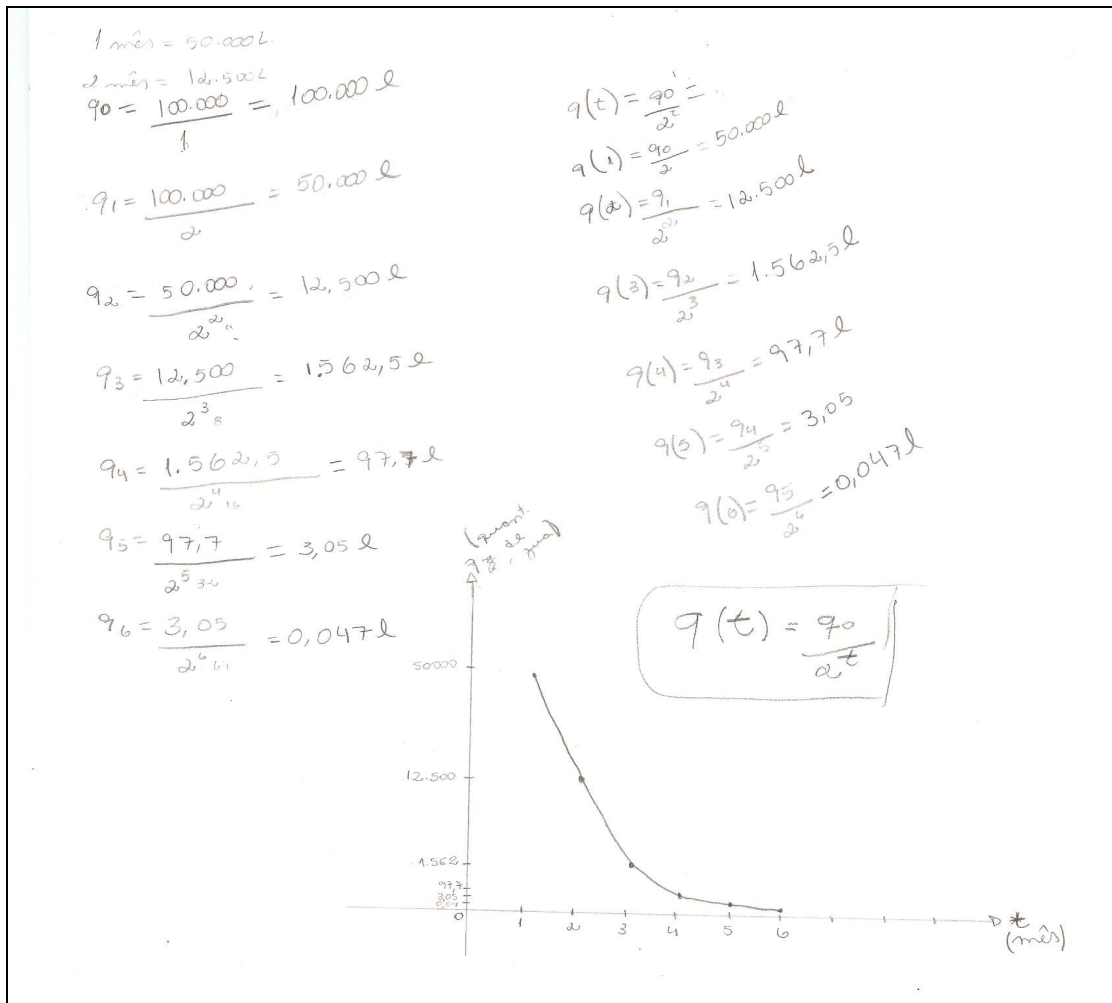 1 mês = 50.000L
2 mês = 12.500L
q0 = 100.000 / 1 = 100.000 l
q1 = 100.000 / 2 = 50.000 l
q2 = 50.000 / 2^2 = 12,500 l
q3 = 12,500 / 2^3 8 = 1.562,5 l
q4 = 1.562,5 / 2^4 16 = 97,7 l
q5 = 97,7 / 2^5 32 = 3,05 l
q6 = 3,05 / 2^6 = 0,047 l
q(t) = q0 / 2^t =
q(1) = q0 / 2 = 50.000 l
q(2) = q1 / 2^2 = 12.500 l
q(3) = q2 / 2^3 = 1.562,5 l
q(4) = q3 / 2^4 = 97,7 l
q(5) = q4 / 2^5 = 3,05
q(6) = q5 / 2^6 = 0,047 l
q(t) = q0 / 2^t
(quant.
de água)
50000
12.500
1.562
97,7
3,05
0,04
0 1 2 3 4 5 6 t
(mês)